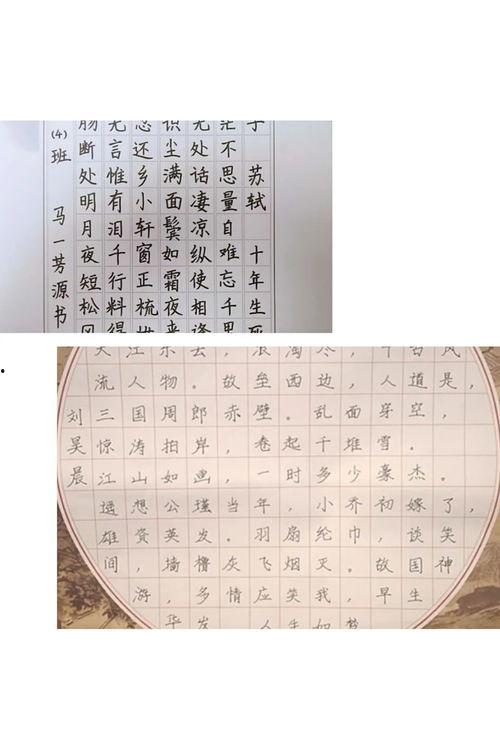 子 苏轼 十年生死
茫不思量自难忘千里
无处话凄凉纵使相逢
识尘满面鬓如霜夜来
忽还乡小轩窗正梳妆
无言惟有泪千行料得
肠断处明月夜短松冈
(4)班 马一芳源书
大江东去，浪淘尽，千古风
流人物。故垒西边，人道是，
刘三国周郎赤壁。乱面穿空，
昊惊涛拍岸，卷起千堆雪.
晨江山如画，一时多少豪杰。
遥想公瑾当年，小乔初嫁了，
雄姿英发。羽扇纶巾，谈笑
间，墙橹灰飞烟灭。故国神
游，多情应笑我，早生
华发 人生如梦